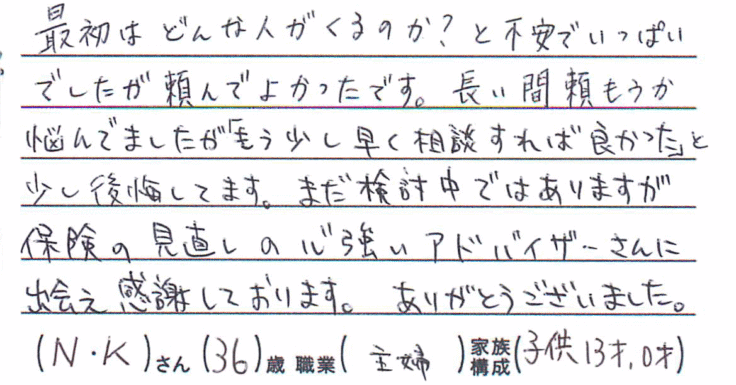 最初はどんな人がくるのか?と不安でいっぱい
でしたが頼んでよかったです。長い間頼もうか
悩んでましたが「もう少し早く相談すれば良かった」と
少し後悔してます。まだ検討中ではありますが
保険の見直しの心強いアドバイザーさんに
出会え感謝しております。ありがとうございました。
(N・K)さん(36)歳 職業(主婦)家族構成(子供13才,0才)